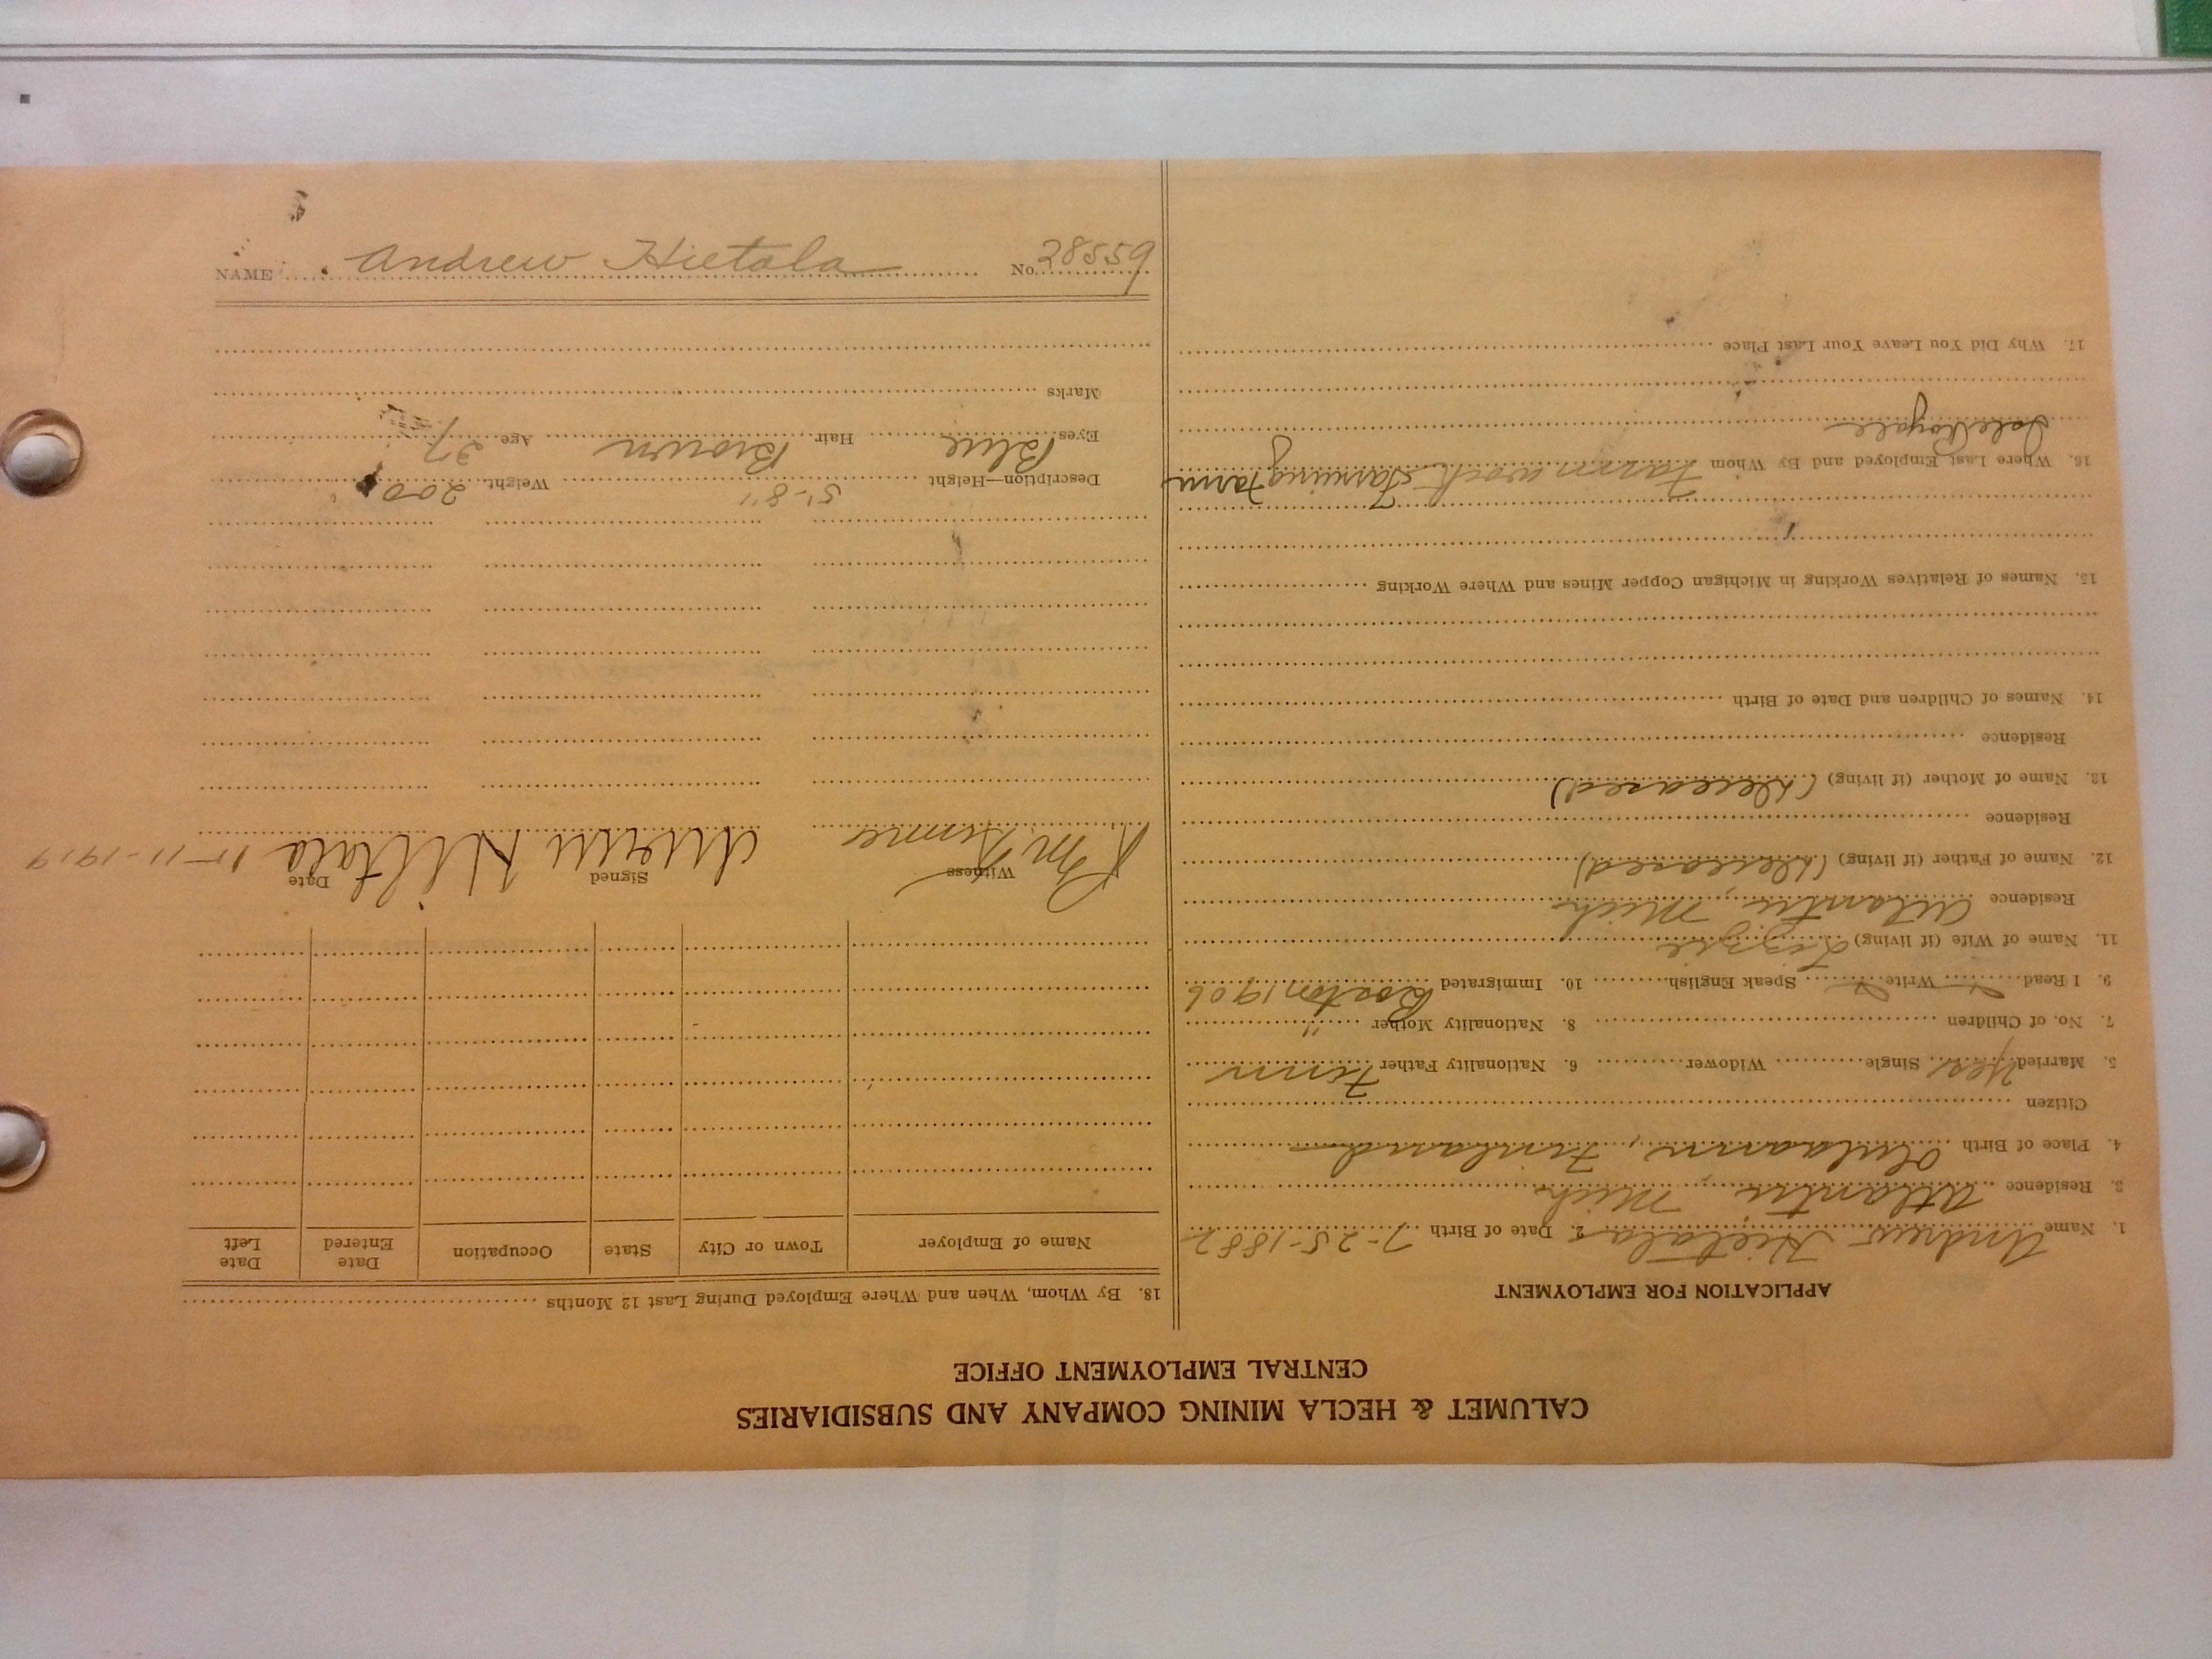 CALUMET & HECLA MINING COMPANY AND SUBSIDIARIES
CENTRAL EMPLOYMENT OFFICE
APPLICATION FOR EMPLOYMENT
1. Name Andrew Hietala 2. Date of Birth 7-25-1882
3. Residence Atlantic, Mich
4. Place of Birth , Finland
Citizen
5. Married Yes Single Widower 6. Nationality Father Finn
7. No. of Children 8. Nationality Mother "
9. I Read Write Speak English 10. Immigrated Boston 1906
11. Name of Wife (if living) Lizzie
Residence Atlantic, Mich
12. Name of Father (if living) (Deceased)
Residence
13. Name of Mother (if living) (Deceased)
Residence
14. Names of Children and Date of Birth
15. Names of Relatives Working in Michigan Copper Mines and Where Working
16. Where Last Employed and By Whom Farm work Farming Farm
Isle Royale
17. Why Did You Leave Your Last Place
18. By Whom, When and Where Employed During Last 12 Months
Name of Employer Town or City State Occupation Date Entered Date Left
Witness Signed Date
Hietala 11-11-1919
Description—Height 5'-8" Weight 200
Eyes Blue Hair Brown Age 37
Marks
NAME Andrew Hietala No. 28559